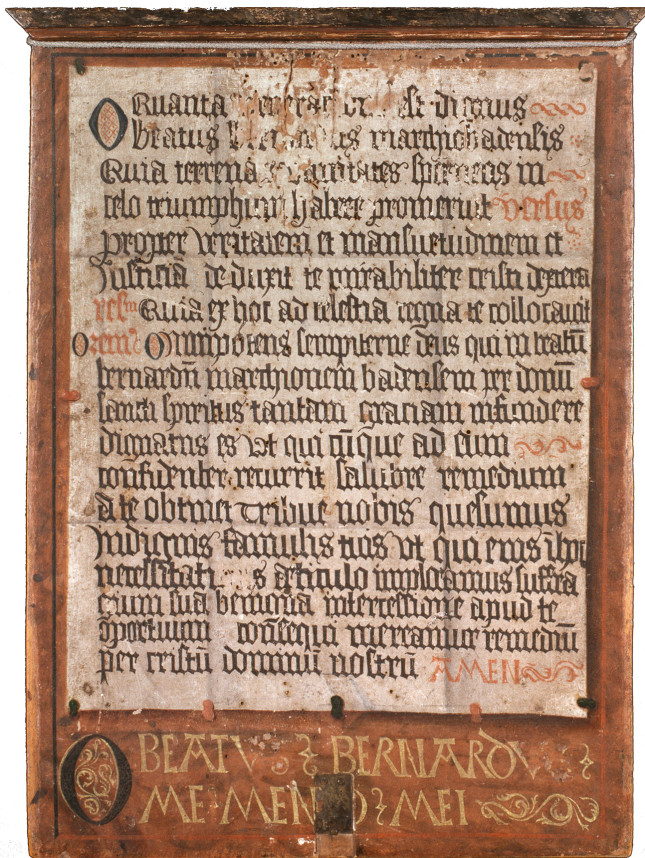 O Quanta est dignus
beatus marchio badensis
Quia terrena in
celo triumphum habere promeruit versus
propter veritatem et mansuetudinem et
Justiciā deduxit te mirabiliter cristi dextera
Quia ex hoc ad celestia regna te collocavit
Oremus Omnipotens sempiterne deus qui in beatū
bernardū marchionem badensem per donū
sancti spiritus tantam graciam infundere
dignatus es vt quicūque ad eum
confidenter recurrit salubre remedium
a te obtinet Tribue nobis quesumus
Indignis famulis tuis vt qui eius ī
necessitati s articulo imploramus suffra
gium sua benigna intercessione apud te
oportunum consequi mereamur remediū
per cristū dominū nostrū AMEN
O BEATVS BERNARDVS
MEMENTO MEI